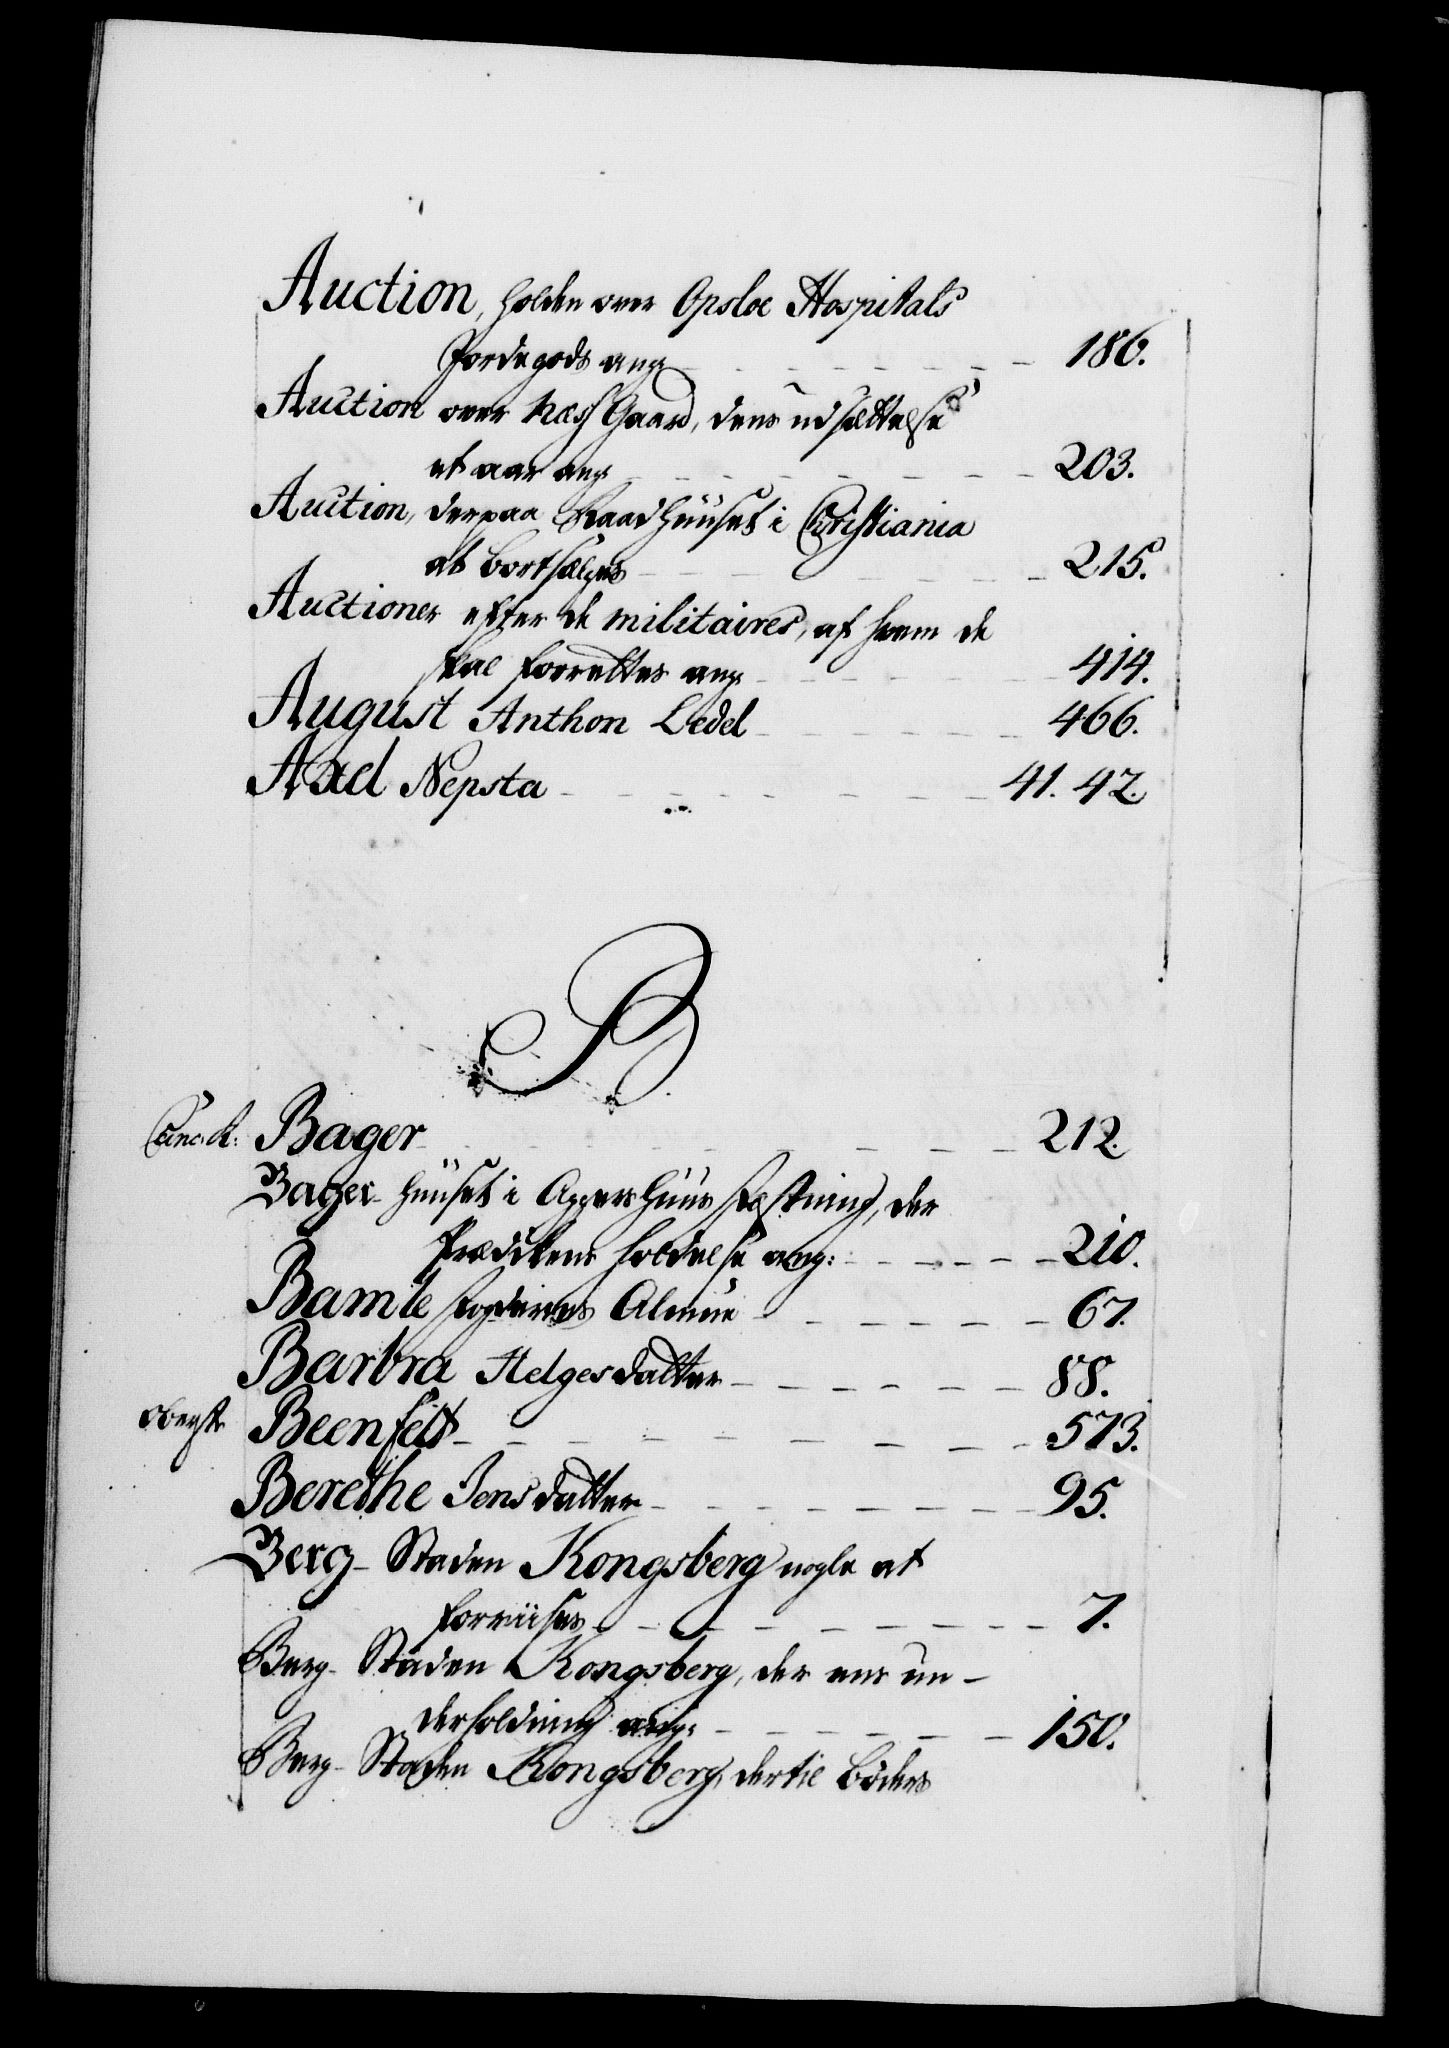 Auction, holden over Opsloe Hospitals
Jordegods ang: 186.
Auction over Næss Gaard, dens udsættelse
et aar ang: 203.
Auction, derpaa Raadhuuset i Christiania
at bortsælges 215.
Auctioner efter de militaires, af hvem de
skal forrettes ang: 414.
August Anthon Ledel 466.
Axel Nepsta 41. 42.
B
Canc. R: Bager 212.
Bager-huuset i Aggershuus Fæstning, der
Prædikens holdelse ang: 210.
Bamle Fogderies Almue 67.
Barbra Helgesdatter 88.
Oberste Beenfelt 573.
Berethe Jensdatter 95.
Berg-Staden Kongsberg nogle at
forviises 7.
Berg-Staden Kongsberg, der ens un-
derholdning ang: 150.
Berg-Staden Kongsberg, dertil bøders